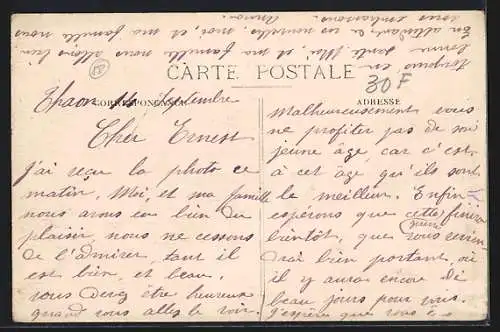 CARTE POSTALE
CORRESPONDANCE
ADRESSE
30F
Thaon Septembre
Cher Ernest
J'ai reçu la photo ce
matin, Moi, et ma famille
nous avons eu bien du
plaisir, nous ne cessons
de l'admirer, tant il
est bien, et beau.
vous devez être heureux
quand vous allez le voir.
Malheureusement vous
ne profiter pas de son
jeune âge, car c'est
à cet âge qu'ils sont
le meilleur. Enfin
esperons que cette
bientôt, que vous
bien portant, où
il y aura encore de
beau jours pour vous.
J'espère que vous
toujours en
bonne santé. Moi, et ma famille nous allons bien.
En attendant de vos nouvelles. moi, et ma famille nous
vous embrassons.